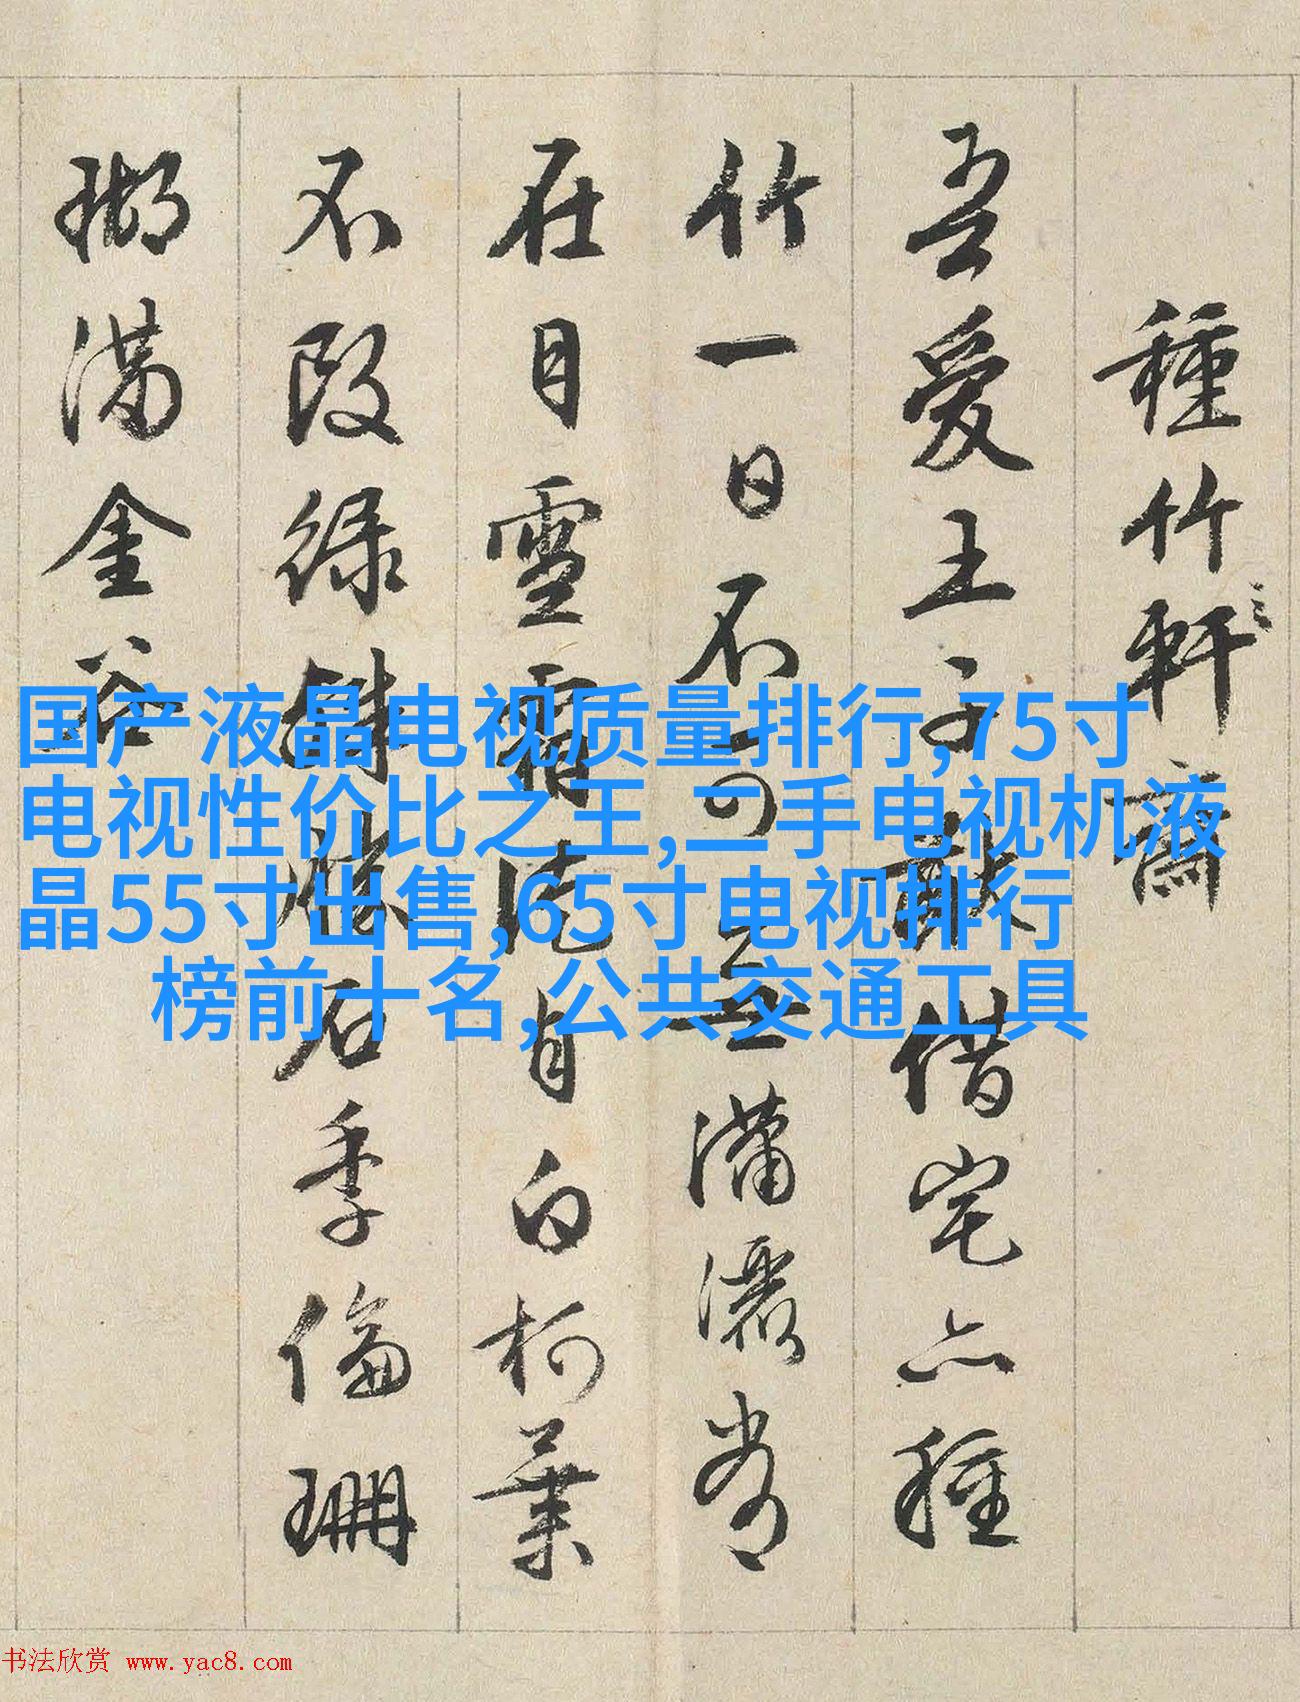 種竹軒齋
吾愛王子猷借宅亦種
竹一日不可無瀟灑常
在目雪霜徒自白柯葉
不改綠殊勝石季倫珊
瑚滿金谷
国产液晶电视质量排行,75寸
电视性价比之王,二手电视机液
晶55寸出售,65寸电视排行
榜前十名,公共交通工具
书法欣赏 www.yac8.com